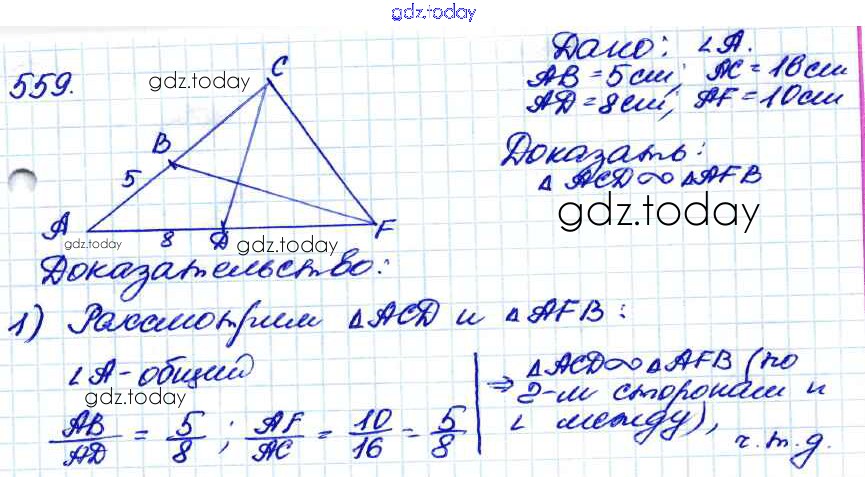 gdz.today
559.
gdz.today
C
B
5
A
gdz.today
8
D
gdz.today
F
Дано: ∠A.
AB = 5 см; AC = 16 см
AD = 8 см; AF = 10 см
Доказать:
△ ACD ∾ △ AFB
gdz.today
Доказательство:
1) Рассмотрим △ ACD и △ AFB:
∠A - общий
gdz.today
AB/AD = 5/8 ; AF/AC = 10/16 = 5/8
⇒ △ACD ∾ △AFB (по
2-м сторонам и
∠ между),
ч.т.д.